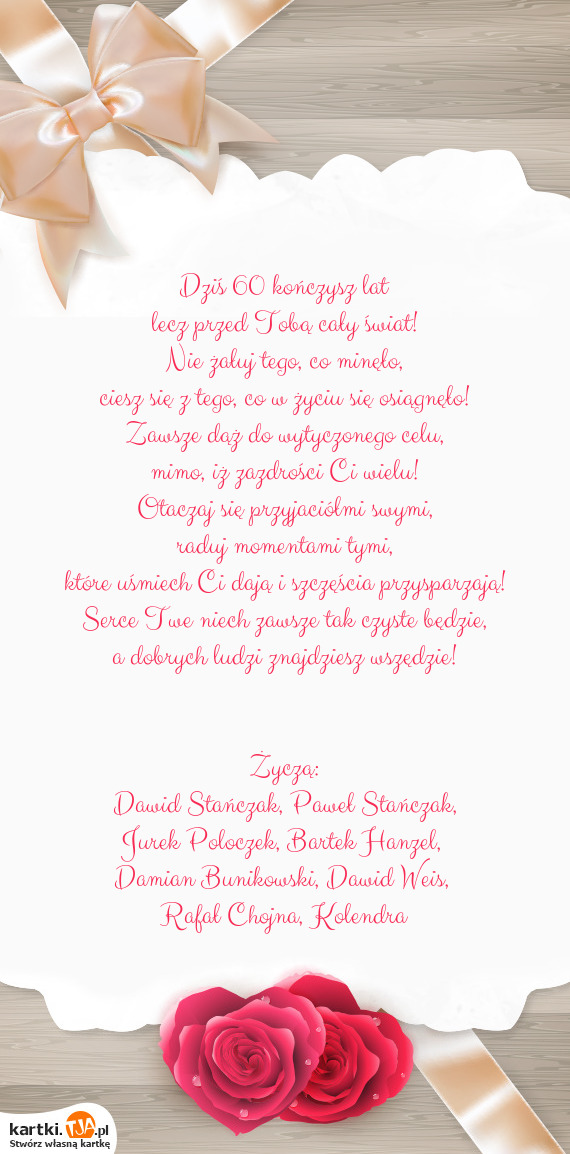 Dziś 60 kończysz lat
lecz przed Tobą cały świat!
Nie żałuj tego, co minęło,
ciesz się z tego, co w życiu się osiągnęło!
Zawsze dąż do wytyczonego celu,
mimo, iż zazdrości Ci wielu!
Otaczaj się przyjaciółmi swymi,
raduj momentami tymi,
które uśmiech Ci dają i szczęścia przysparzają!
Serce Twe niech zawsze tak czyste będzie,
a dobrych ludzi znajdziesz wszędzie!
Życzą:
Dawid Stańczak, Paweł Stańczak,
Jurek Poloczek, Bartek Hanzel,
Damian Bunikowski, Dawid Weis,
Rafał Chojna, Kolendra
kartki.TJA.pl
Stwórz własną kartkę